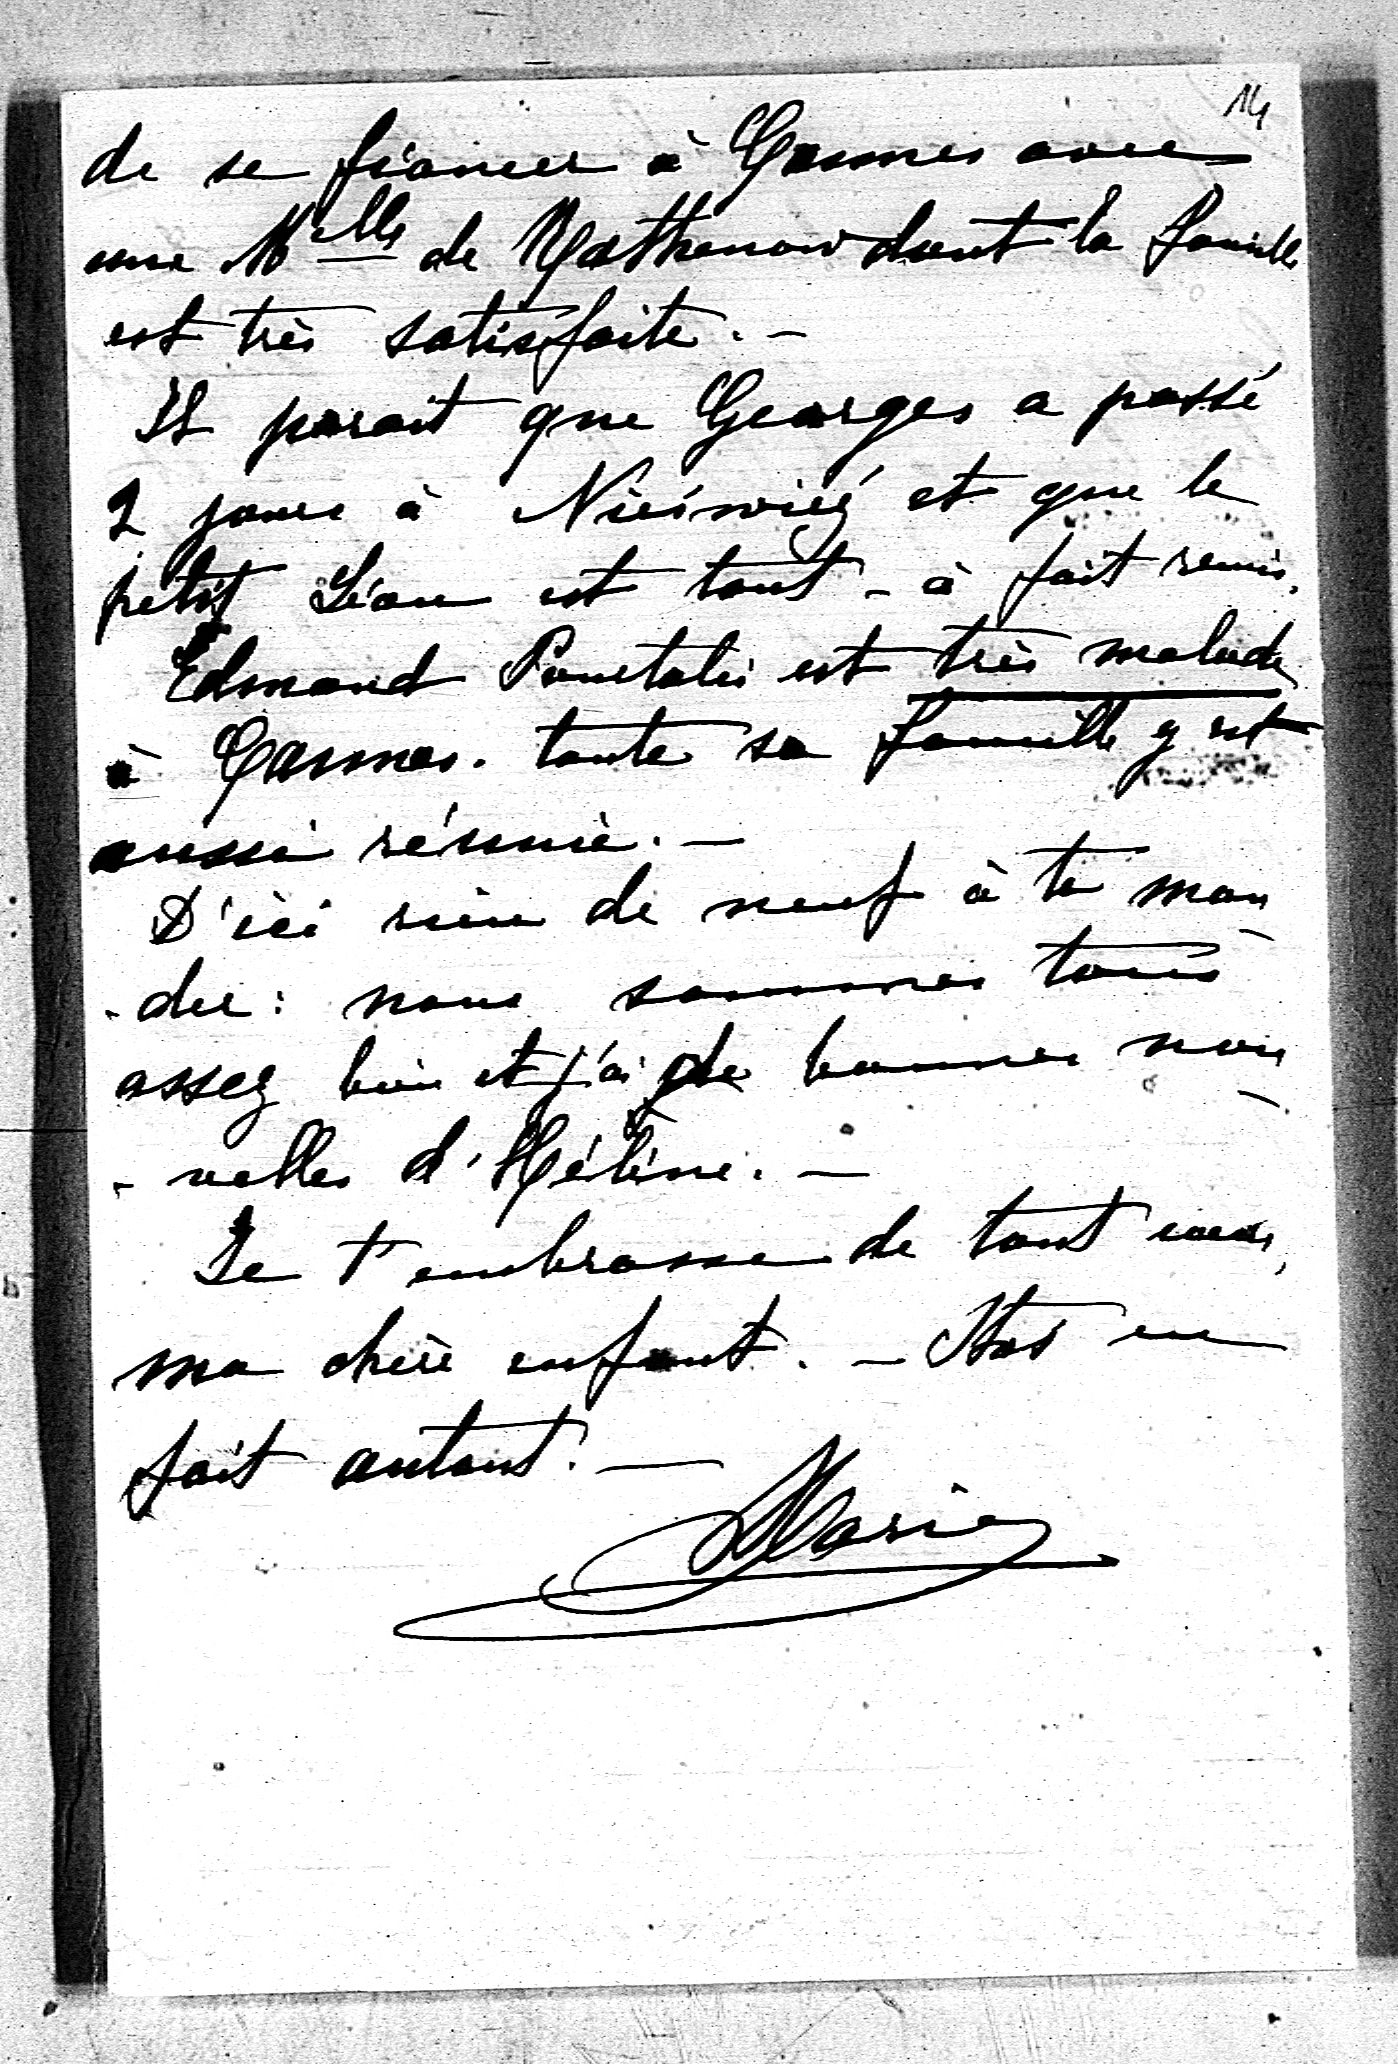 14
de se fiancer à Cannes avec
une Melle de Rathenow dont la famille
est très satisfaite. -
Il parait que Georges a passé
2 jours à Nieśwież et que le
petit Léon est tout - à fait remis.
Edmond Pourtalès est très malade
à Cannes. toute sa famille y est
aussi réunie. -
D'ici rien de neuf à te man
- der : nous sommes tous
assez bien et j'ai de bonnes nou
- velles d'Hélène. -
Je t'embrasse de tout cœur,
ma chère enfant. - Stas en
fait autant. -
Marie